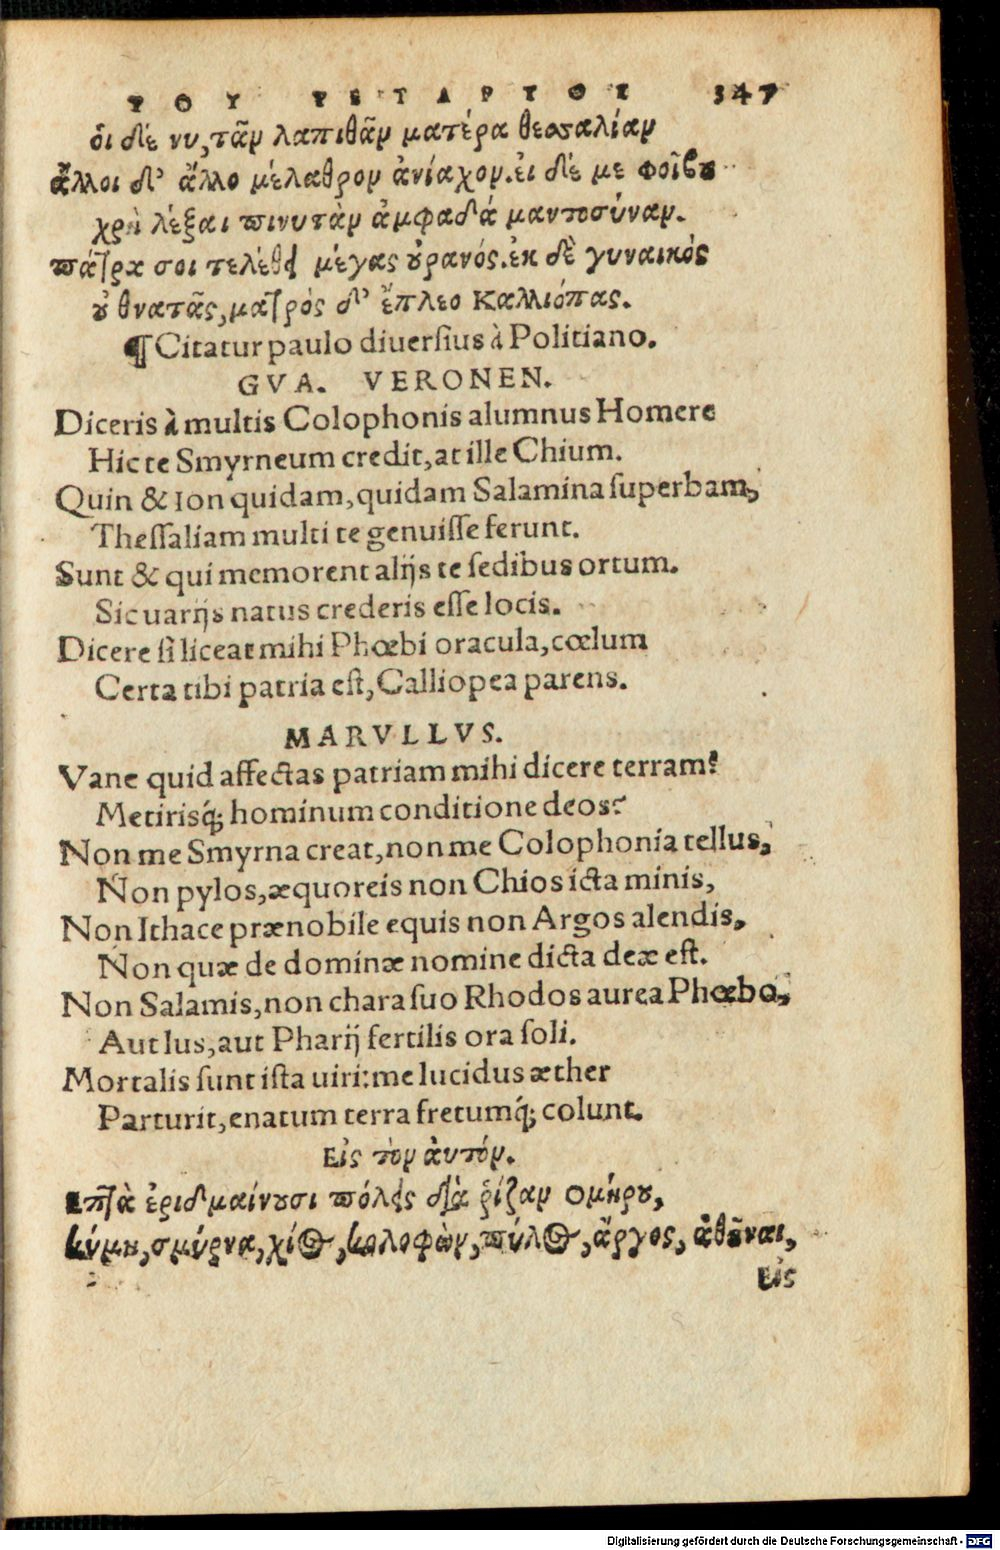 ΤΟΥ ΤΕΤΑΡΤΟΥ 347
ὁι δέ νυ, τᾶν λαπιθᾶν ματέρα θεσσαλίαν
ἄλλοι δ' ἄλλο μέλαθρον ἀνίαχον. ἐι δέ με φοῖβȣ
χρὴ λέξαι πινυτὰν ἀμφαδά μαντοσύναν.
πάτρα σοι τελέθει μέγας ȣ̓ρανός. ἐκ δὲ γυναικὸς
ȣ̓ θνατᾶς, ματρός δ' ἔπλεο Καλλιόπας.
¶ Citatur paulo diuersius à Politiano.
GVA. VERONEN.
Diceris à multis Colophonis alumnus Homere
Hic te Smyrneum credit, at ille Chium.
Quin & Ion quidam, quidam Salamina ſuperbam,
Theſſaliam multi te genuiſſe ferunt.
Sunt & qui memorent alijs te ſedibus ortum.
Sic uarijs natus crederis eſſe locis.
Dicere ſi liceat mihi Phœbi oracula, cœlum
Certa tibi patria eſt, Calliopea parens.
MARVLLVS.
Vane quid affectas patriam mihi dicere terram?
Metirisq́; hominum conditione deos?
Non me Smyrna creat, non me Colophonia tellus,
Non pylos, æquoreis non Chios icta minis,
Non Ithace prænobile equis non Argos alendis,
Non quæ de dominæ nomine dicta deæ eſt.
Non Salamis, non chara ſuo Rhodos aurea Phœbo,
Aut Ius, aut Pharij fertilis ora ſoli.
Mortalis ſunt iſta uiri: me lucidus æther
Parturit, enatum terra fretumq́; colunt.
Εἰς τὸν ἀυτόν.
Ἑπτὰ ἐριδμαίνȣσι πόλεις διὰ ῥίζαν Ομήρȣ,
κύμη, σμύρνα, χίος, κολοφὼν, πύλος, ἄργος, ἀθῆναι,
Εἰς
Digitalisierung gefördert durch die Deutsche Forschungsgemeinschaft - DFG